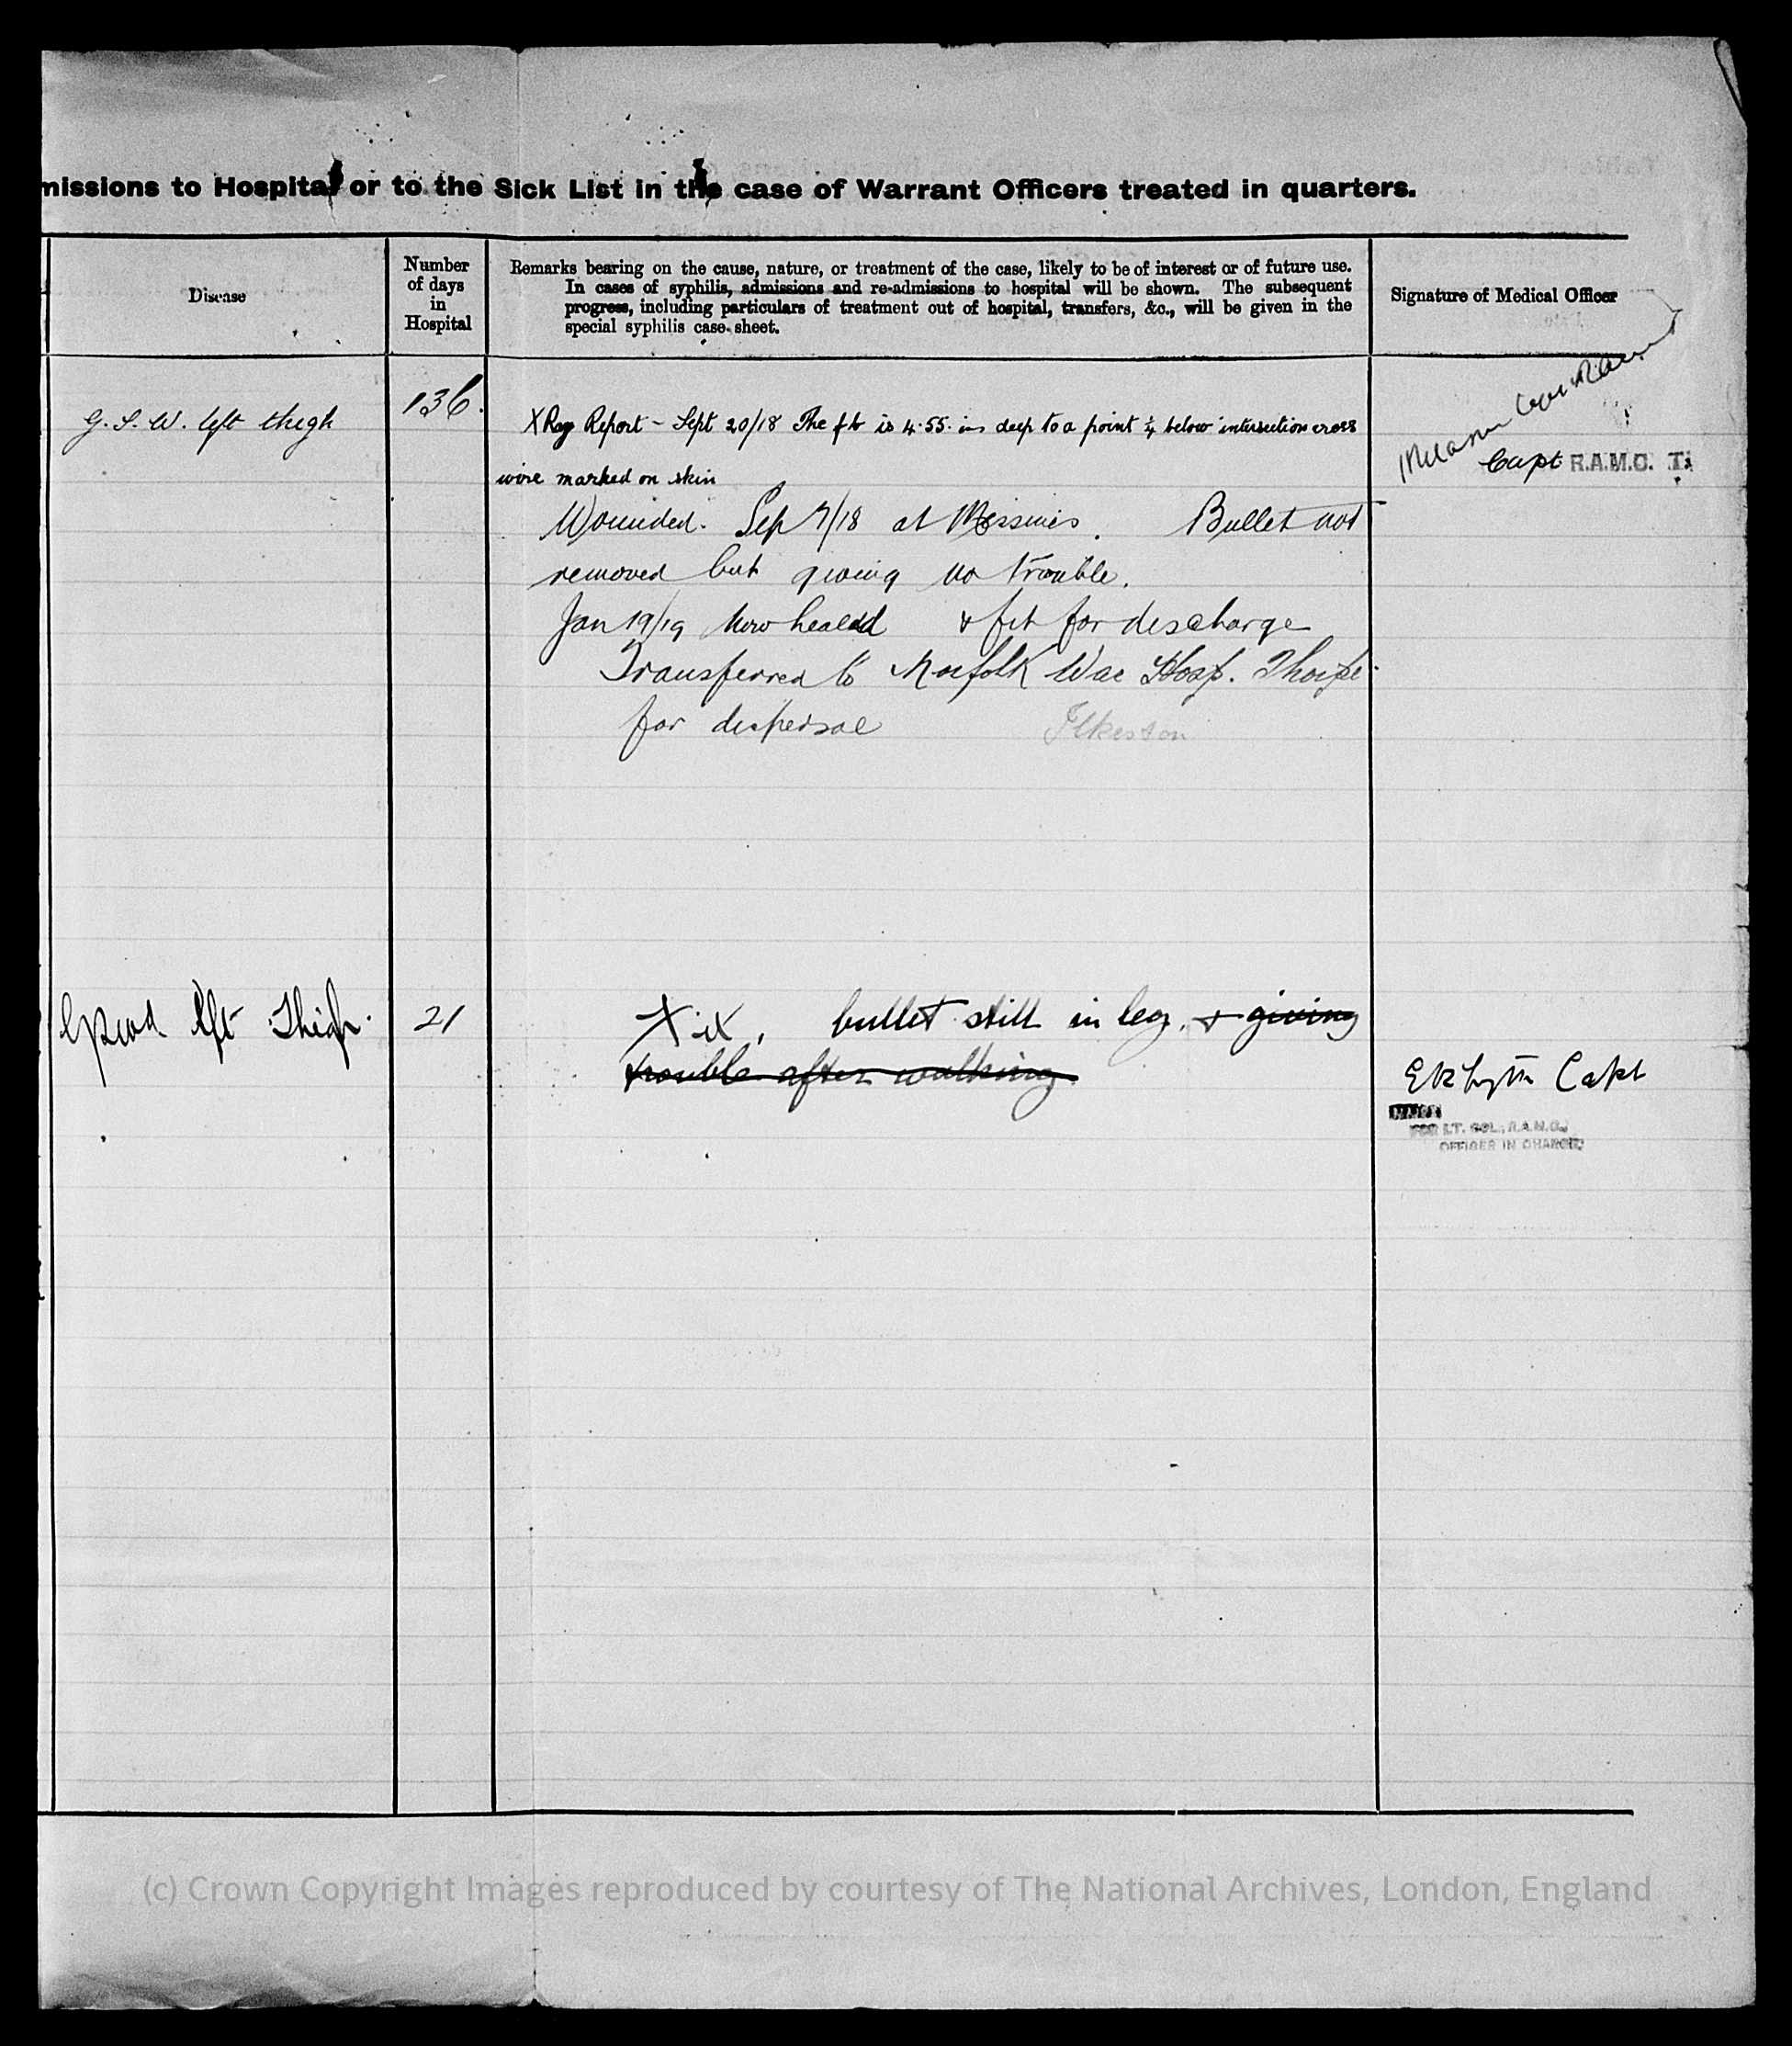 missions to Hospital or to the Sick List in the case of Warrant Officers treated in quarters.
Disease
Number
of days
in
Hospital
Remarks bearing on the cause, nature, or treatment of the case, likely to be of interest or of future use.
In cases of syphilis, admissions and re-admissions to hospital will be shown. The subsequent
progress, including particulars of treatment out of hospital, transfers, &c., will be given in the
special syphilis case-sheet.
Signature of Medical Officer
G.S.W. left thigh
136.
X Ray Report - Sept 20/18 The fb is 4.55. ins deep to a point ¼ below intersection cross
wire marked on skin
Capt R.A.M.C. T.
Wounded. Sep 7/18 at Messines. Bullet not
removed but giving no trouble.
Jan 19/19 Now healed & fit for discharge
Transferred to Norfolk War Hosp. Thorpe
for dispersal Ilkeston
left Thigh.
21
bullet still in leg, & giving
trouble after walking.
Capt
FOR LT. COL., R.A.M.C.,
OFFICER IN CHARGE
(c) Crown Copyright Images reproduced by courtesy of The National Archives, London, England